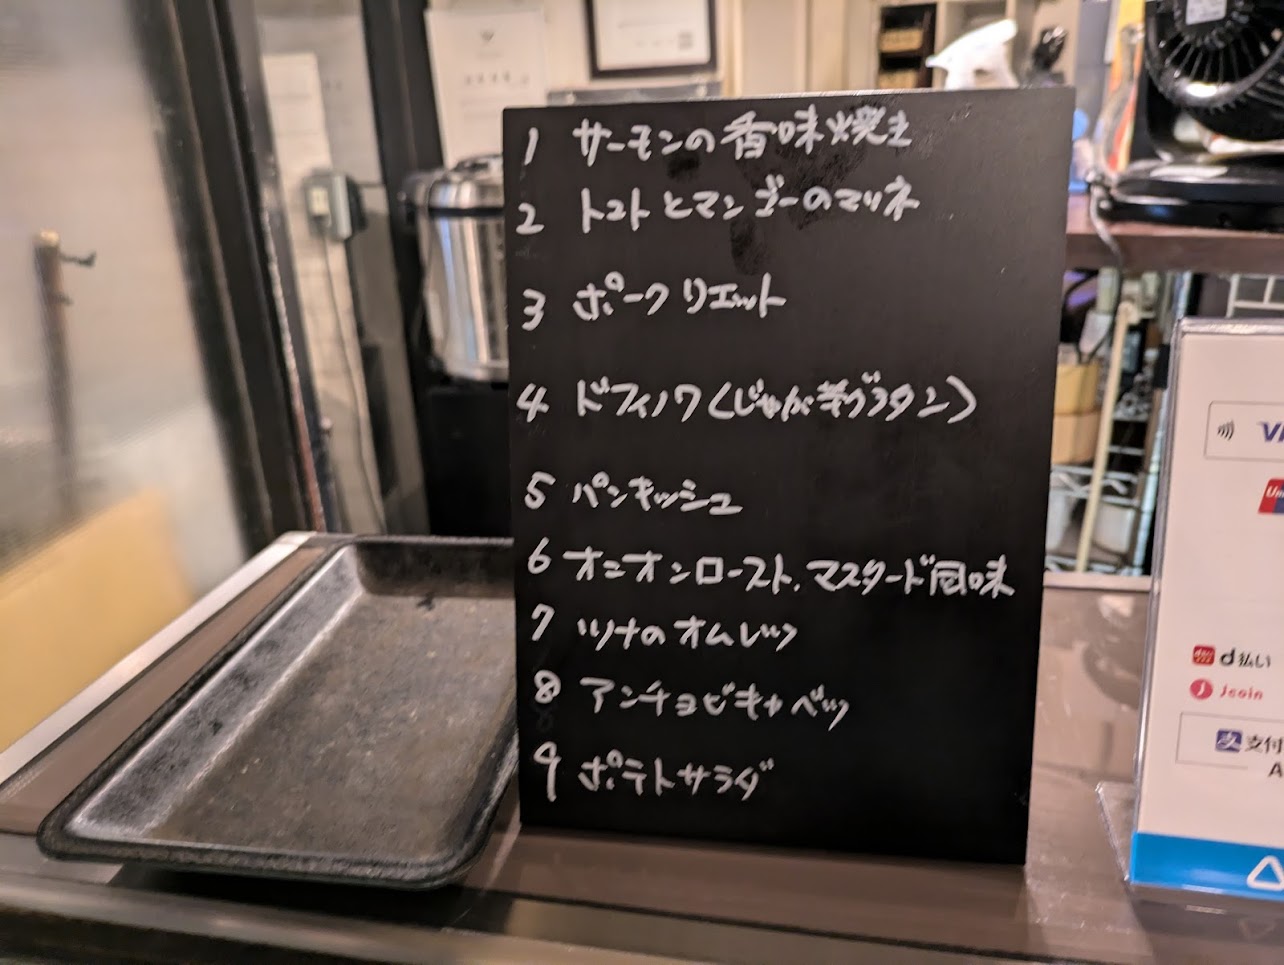 1 サーモンの香味焼き
2 トマトとマンゴーのマリネ
3 ポークリエット
4 ドフィノワ(じゃが芋グラタン)
5 パンキッシュ
6 オニオンロースト.マスタード風味
7 ツナのオムレツ
8 アンチョビキャベツ
9 ポテトサラダ
d払い
Jcoin
支付